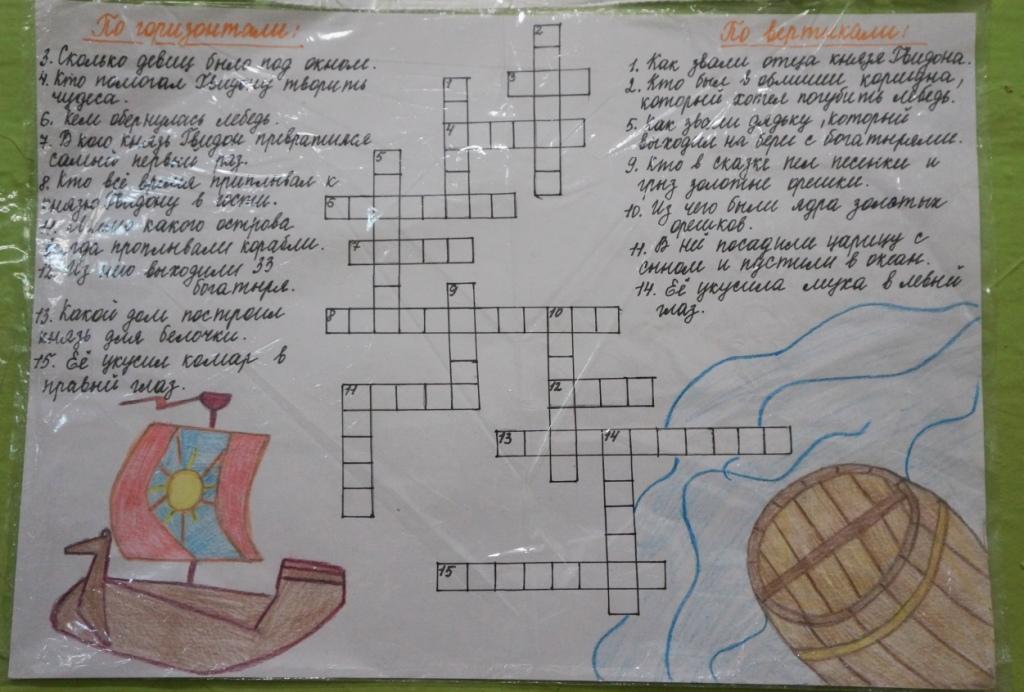 По горизонтали:
3. Сколько девиц было под окном.
4. Кто помогал Гвидону творить
чудеса.
6. Кем обернулась лебедь.
7. В кого князь Гвидон превратился
самый первый раз.
8. Кто всё время приплывал к
князю Гвидону в гости.
11. Мимо какого острова
всегда проплывали корабли.
12. Из него выходили 33
богатыря.
13. Какой дом построил
князь для белочки.
15. Её укусил комар в
правый глаз.
По вертикали:
1. Как звали отца князя Гвидона.
2. Кто был в обличии коршуна,
который хотел погубить лебедь.
5. Как звали дядьку, который
выходил на берег с богатырями.
9. Кто в сказке пел песенки и
грыз золотые орешки.
10. Из чего были ядра золотых
орешков.
11. В неё посадили царицу с
сыном и пустили в океан.
14. Её укусила муха в левый
глаз.
2
1
3
4
5
6
7
9
8
10
11
12
13
14
15